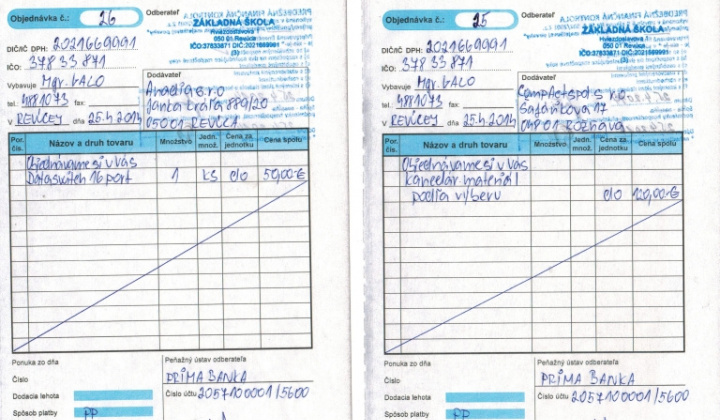 Objednávka č.: 26
Odberateľ
ZÁKLADNÁ ŠKOLA
Hviezdoslavova 1
050 01 Revúca
IČO:37833871 DIČ:2021669991
(3)
DIČ/IČ DPH: 2021669991
IČO: 378 33 871
Vybavuje Mgr. GALO
tel. 4881073 fax
V REVÚCEJ dňa 25.4.2014
Dodávateľ
Janka Kráľa 889/20
05001 REVÚCA
Por. čís.
Názov a druh tovaru
Množstvo
Jedn. množ.
Cena za jednotku
Cena spolu
Objednávame si u Vás
Dataswitch 16 port 1 ks c/o 50,00 €
Ponuka zo dňa
Číslo
Dodacia lehota
Spôsob platby PP
Peňažný ústav odberateľa
PRIMA BANKA
Číslo účtu 2057100001/5600
Objednávka č.: 25
Odberateľ
ZÁKLADNÁ ŠKOLA
Hviezdoslavova 1
050 01 Revúca
IČO:37833871 DIČ:2021669991
(3)
DIČ/IČ DPH: 2021669991
IČO: 378 33 871
Vybavuje Mgr. GALO
tel. 4881073 fax
V REVÚCEJ dňa 25.4.2014
Dodávateľ
CompActspol s r.o
Šafárikova 17
048 01 Rožňava
Por. čís.
Názov a druh tovaru
Množstvo
Jedn. množ.
Cena za jednotku
Cena spolu
Objednávame si u Vás
kancelár materiál
podľa výberu c/o 120,00 €
Ponuka zo dňa
Číslo
Dodacia lehota
Spôsob platby PP
Peňažný ústav odberateľa
PRIMA BANKA
Číslo účtu 2057100001/5600